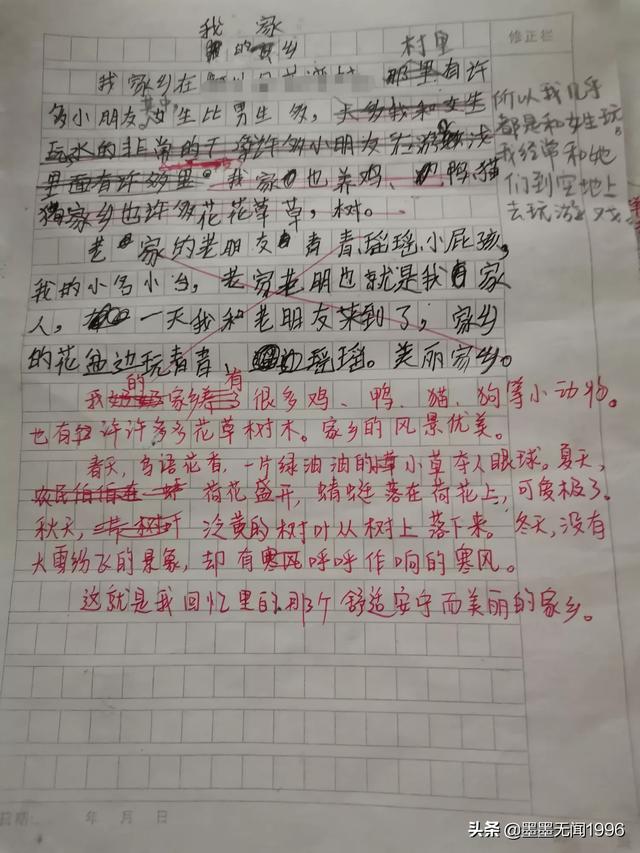 我家
的家乡
修正栏
我家乡在
村里
那里有许
多小朋友其中女生比男生多,大多我和女生
玩水的非常的干净许多小朋友在
里面有许多里。我家也养鸡、鸭,猫
家乡也许多花花草草,树。
所以我几乎
都是和女生玩。
我经常和她
们到空地上
去玩游戏。
老家的老朋友青青瑶瑶小屁孩,
我的小名小冶,老家老朋也就是我家
人,一天我和老朋友来到了,家乡
的花边玩青青、瑶瑶。美丽家乡。
我的家乡有很多鸡、鸭、猫、狗等小动物。
也有许许多多花草树木。家乡的风景优美。
春天,鸟语花香,一片绿油油的小草夺人眼球。夏天,
农民伯伯在一 荷花盛开,蜻蜓落在荷花上,可爱极了。
秋天,泛黄的树叶从树上落下来。冬天,没有
大雪纷飞的景象,却有寒风呼呼作响的寒风。
这就是我回忆里的那个舒适安宁而美丽的家乡。
日期: 年 月 日
头条 @墨墨无闻1996